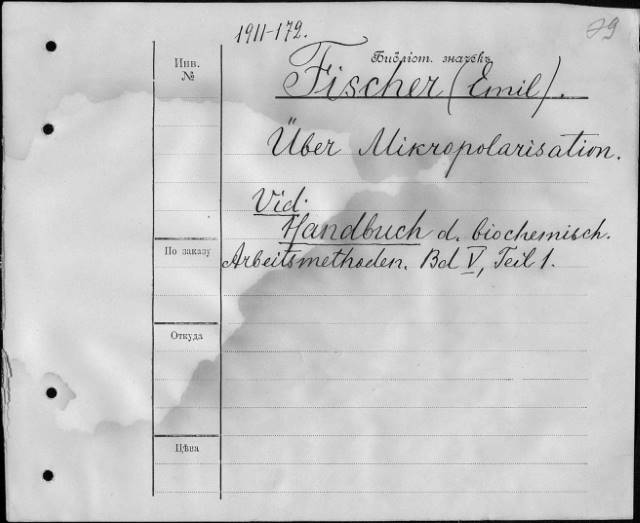 1911-172.
29
Инв.
№
Библіот. значекъ
Fischer (Emil).
Über Mikropolarisation.
Vid.
Handbuch d. biochemisch.
Arbeitsmethoden. Bd V, Teil 1.
По заказу
Откуда
Цѣна